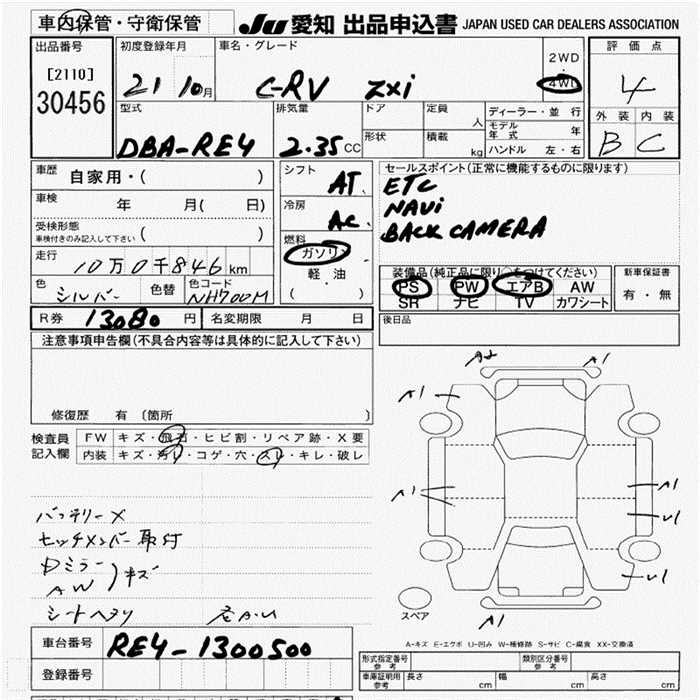 車内保管・守衛保管
JU 愛知 出品申込書 JAPAN USED CAR DEALERS ASSOCIATION
出品番号
[2110]
30456
初度登録年月
21 10月
車名・グレード
C-RV ZXi
2WD
・
4WD
評価点
4
外装 内装
B C
型式
DBA-RE4
排気量
2.35 CC
ドア
形状
定員
人
積載
kg
ディーラー・並行
モデル年式 年
ハンドル 左・右
車歴 自家用・( )
車検 年 月( 日)
受検形態
車検付きのみ記入して下さい ( )
走行 10万0千846km
色 シルバー 色替 色コード NH700M
シフト AT
冷房 AC
燃料
ガソリン
軽油
( )
セールスポイント(正常に機能するものに限ります)
ETC
NAVi
BACK CAMERA
装備品(純正品に限り○をつけてください)
PS PW エアB AW
SR ナビ TV カワシート
新車保証書
有・無
R券 13080円 名変期限 月 日
後日品
注意事項申告欄(不具合内容等は具体的に記入して下さい)
修復歴 有 〔箇所 〕
検査員記入欄
FW キズ・飛石・ヒビ割・リペア跡・X要
内装 キズ・汚レ・コゲ・穴・スレ・キレ・破レ
バッテリーX
ヒッチメンバー取付
Dミラー
AW
キズ
シートヘタリ
A2 A1
A1
A1
A1
U1
U1
A1
スペア
A-キズ E-エクボ U-凹み W-補修跡 S-サビ C-腐食 XX-交換済
車台番号 RE4-1300500
登録番号
形式指定番号
参考
類別区分番号
参考
車庫証明用
参考
長さ cm 幅 cm 高さ cm